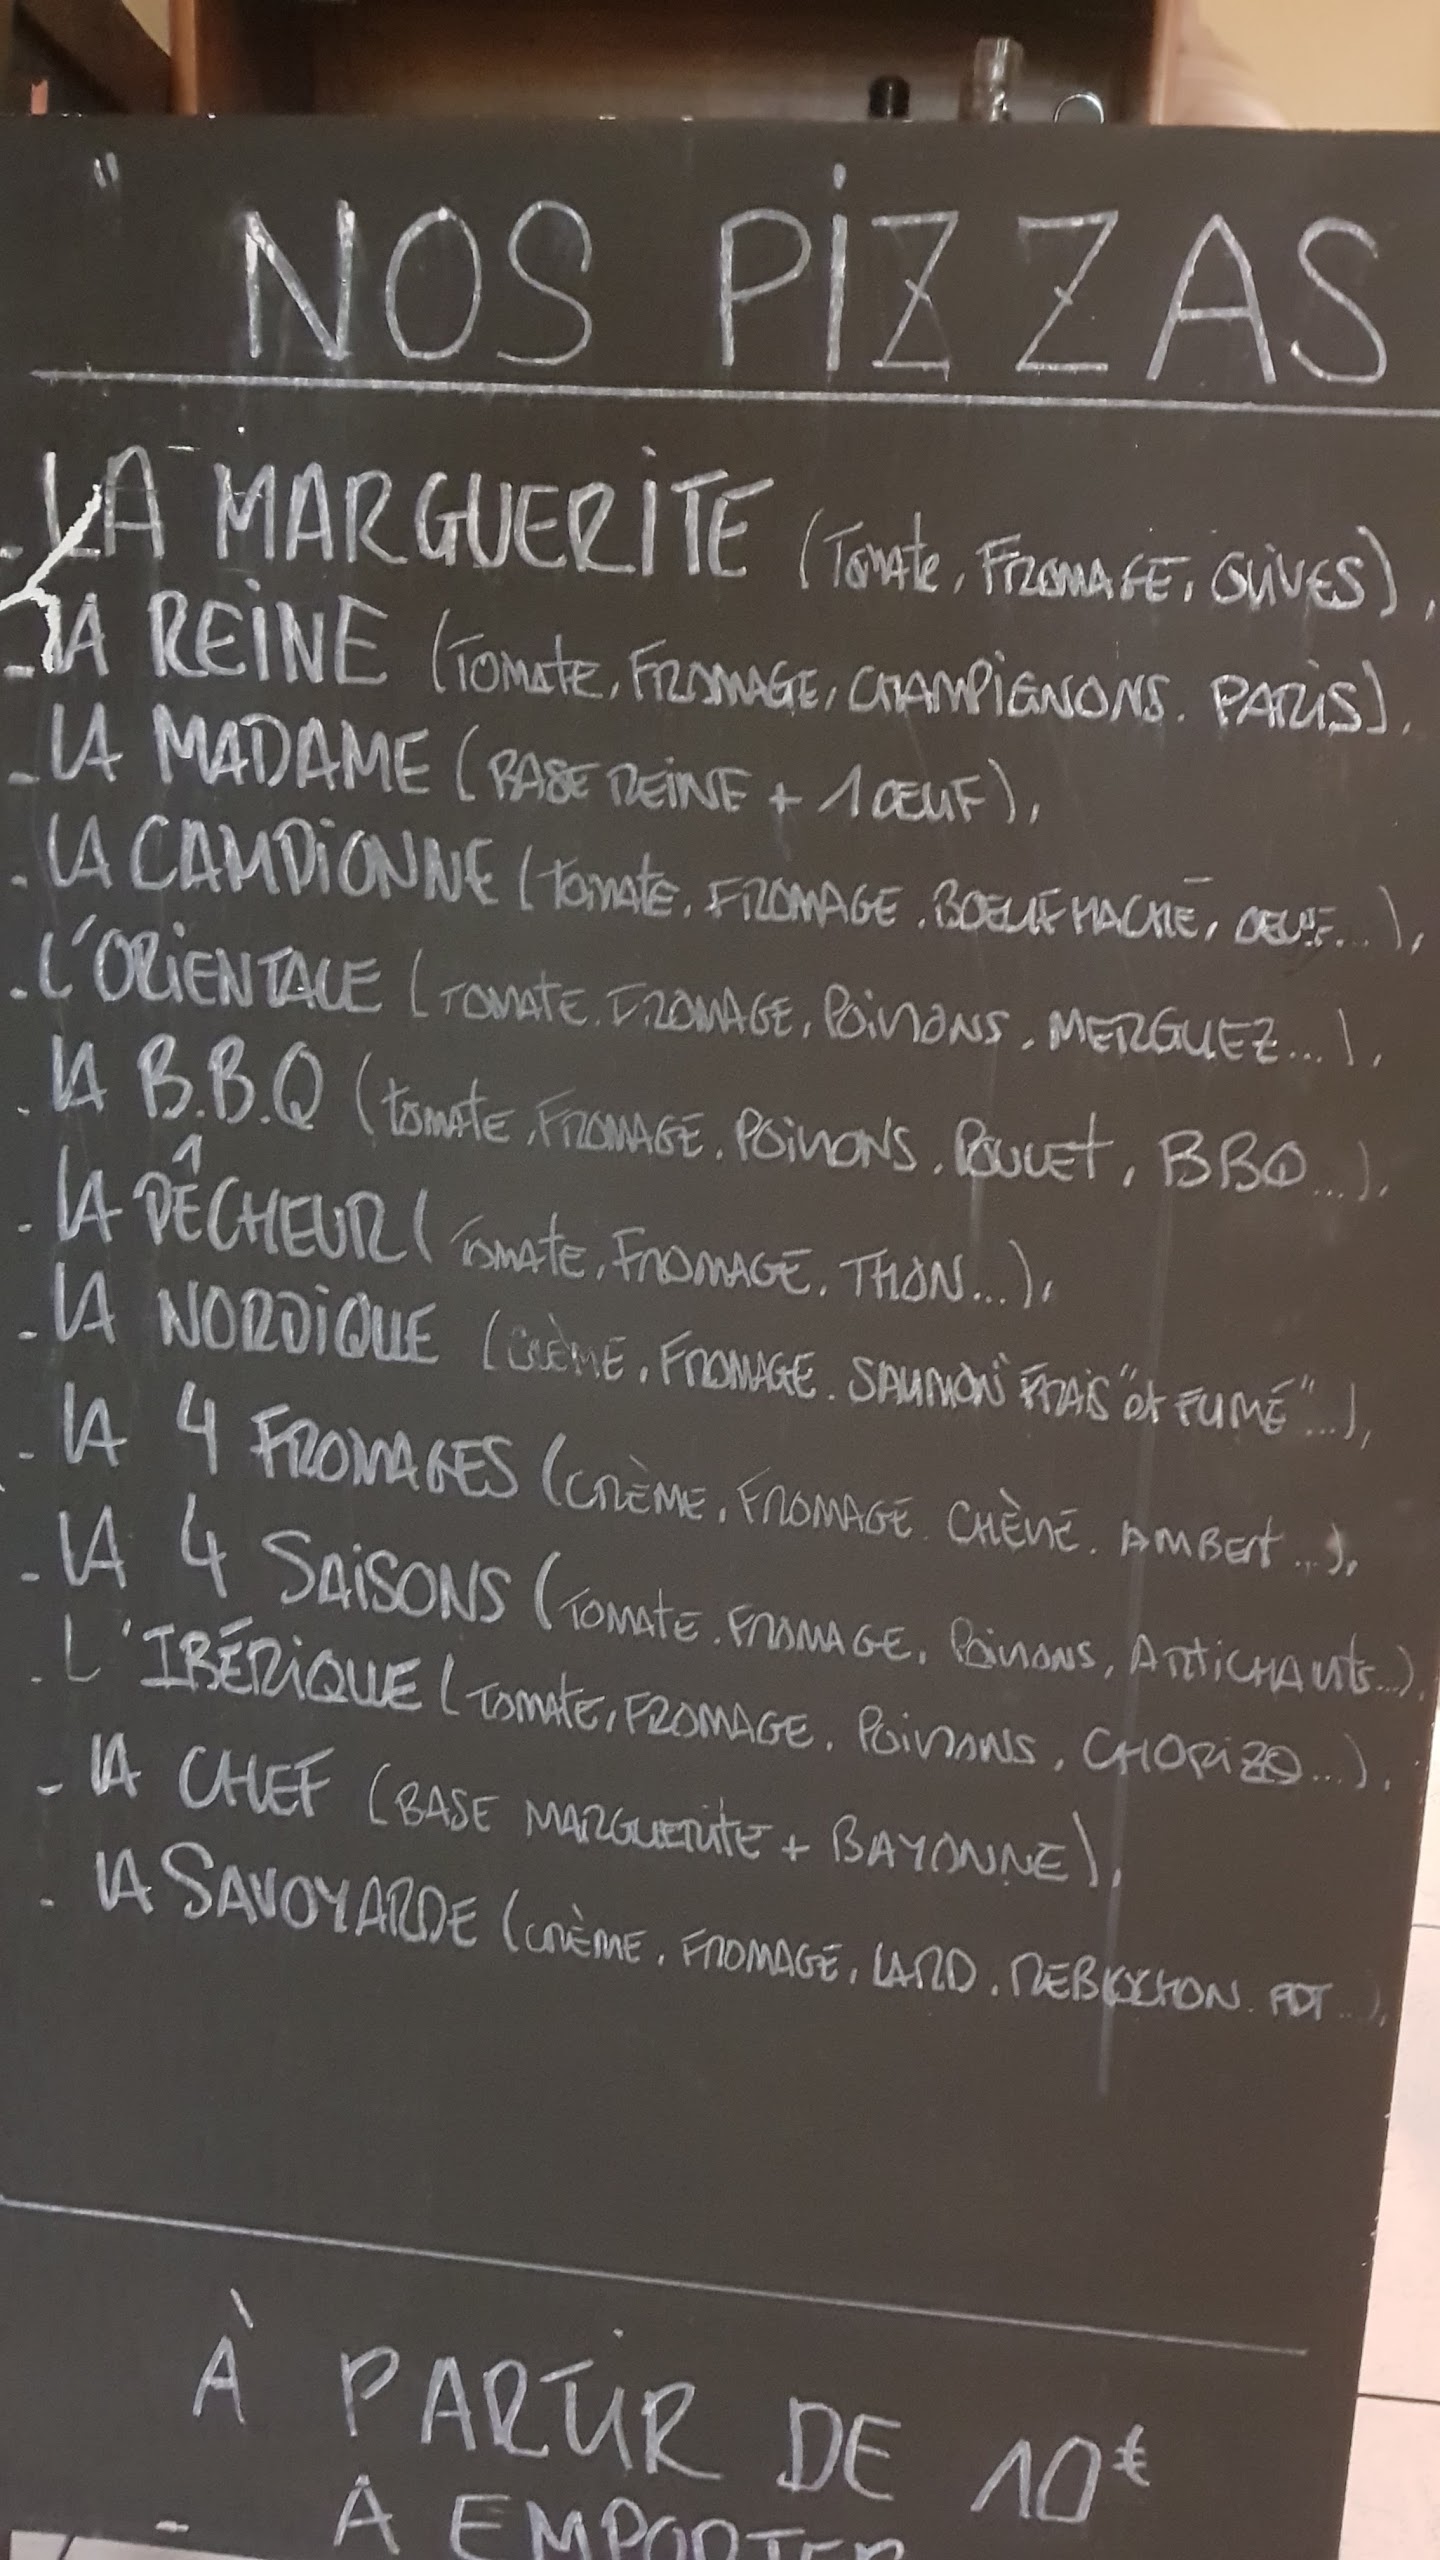 " NOS PIZZAS
- LA MARGUERITE (Tomate, FROMAGE, OLIVES),
- LA REINE (TOMATE, FROMAGE, CHAMPIGNONS. PARIS).
- LA MADAME (BASE REINE + 1 ŒUF),
- LA CAMPIONNE (Tomate, FROMAGE. BOEUF HACHÉ, OEUF...),
- L'ORIENTALE (TOMATE. FROMAGE, POIVRONS, MERGUEZ...),
- LA B.B.Q (tomate, FROMAGE, POIVRONS. POULET, BBQ...),
- LA PÊCHEUR (Tomate, FROMAGE. THON...),
- LA NORDIQUE (CRÈME, FROMAGE. SAUMON "FRAIS" et FUMÉ"...),
- LA 4 FROMAGES (CRÈME, FROMAGE. CHÈVRE. AMBERT...),
- LA 4 SAISONS (TOMATE. FROMAGE, POIVRONS, ARTICHAUTS...),
- L'IBÉRIQUE (TOMATE, FROMAGE. POIVRONS, CHORIZO...),
- LA CHEF (BASE MARGUERITE + BAYONNE),
- LA SAVOYARDE (CRÈME, FROMAGE, LARD. REBLOCHON. PDT...),
À PARTIR DE 10€
- À EMPORTER